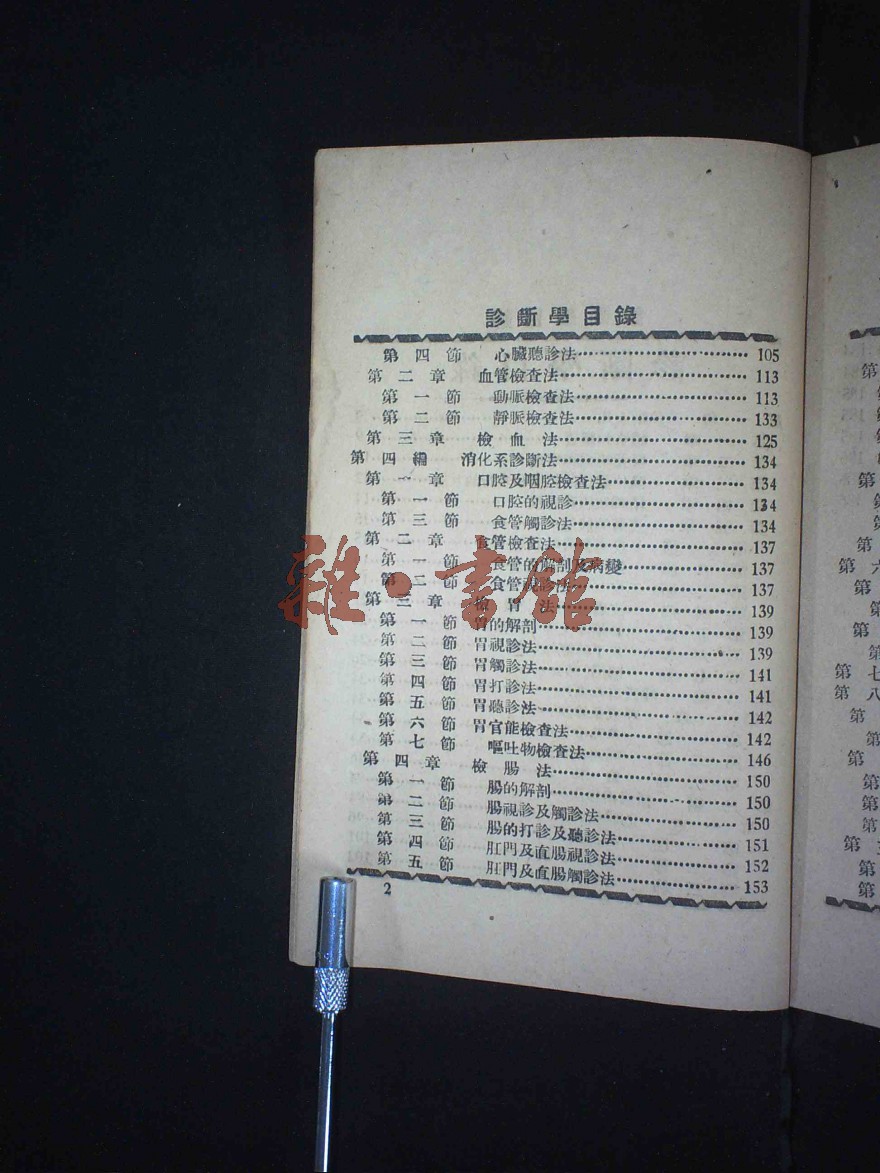 診斷學目錄
第四節 心臟聽診法 105
第二章 血管檢查法 113
第一節 動脈檢查法 113
第二節 靜脈檢查法 133
第三章 檢血法 125
第四編 消化系診斷法 134
第一章 口腔及咽腔檢查法 134
第一節 口腔的視診 134
第三節 食管觸診法 134
第二章 食管檢查法 137
第一節 食管的解剖及病變 137
第二節 食管視診法 137
第三章 檢胃法 139
第一節 胃的解剖 139
第二節 胃視診法 139
第三節 胃觸診法 141
第四節 胃打診法 141
第五節 胃聽診法 142
第六節 胃官能檢查法 142
第七節 嘔吐物檢查法 146
第四章 檢腸法 150
第一節 腸的解剖 150
第二節 腸視診及觸診法 150
第三節 腸的打診及聽診法 151
第四節 肛門及直腸視診法 152
第五節 肛門及直腸觸診法 153
2
雜·書館
第
第
第
第六
第
第
第
第七
第八
第
第
第
第
第
第
第
第
第